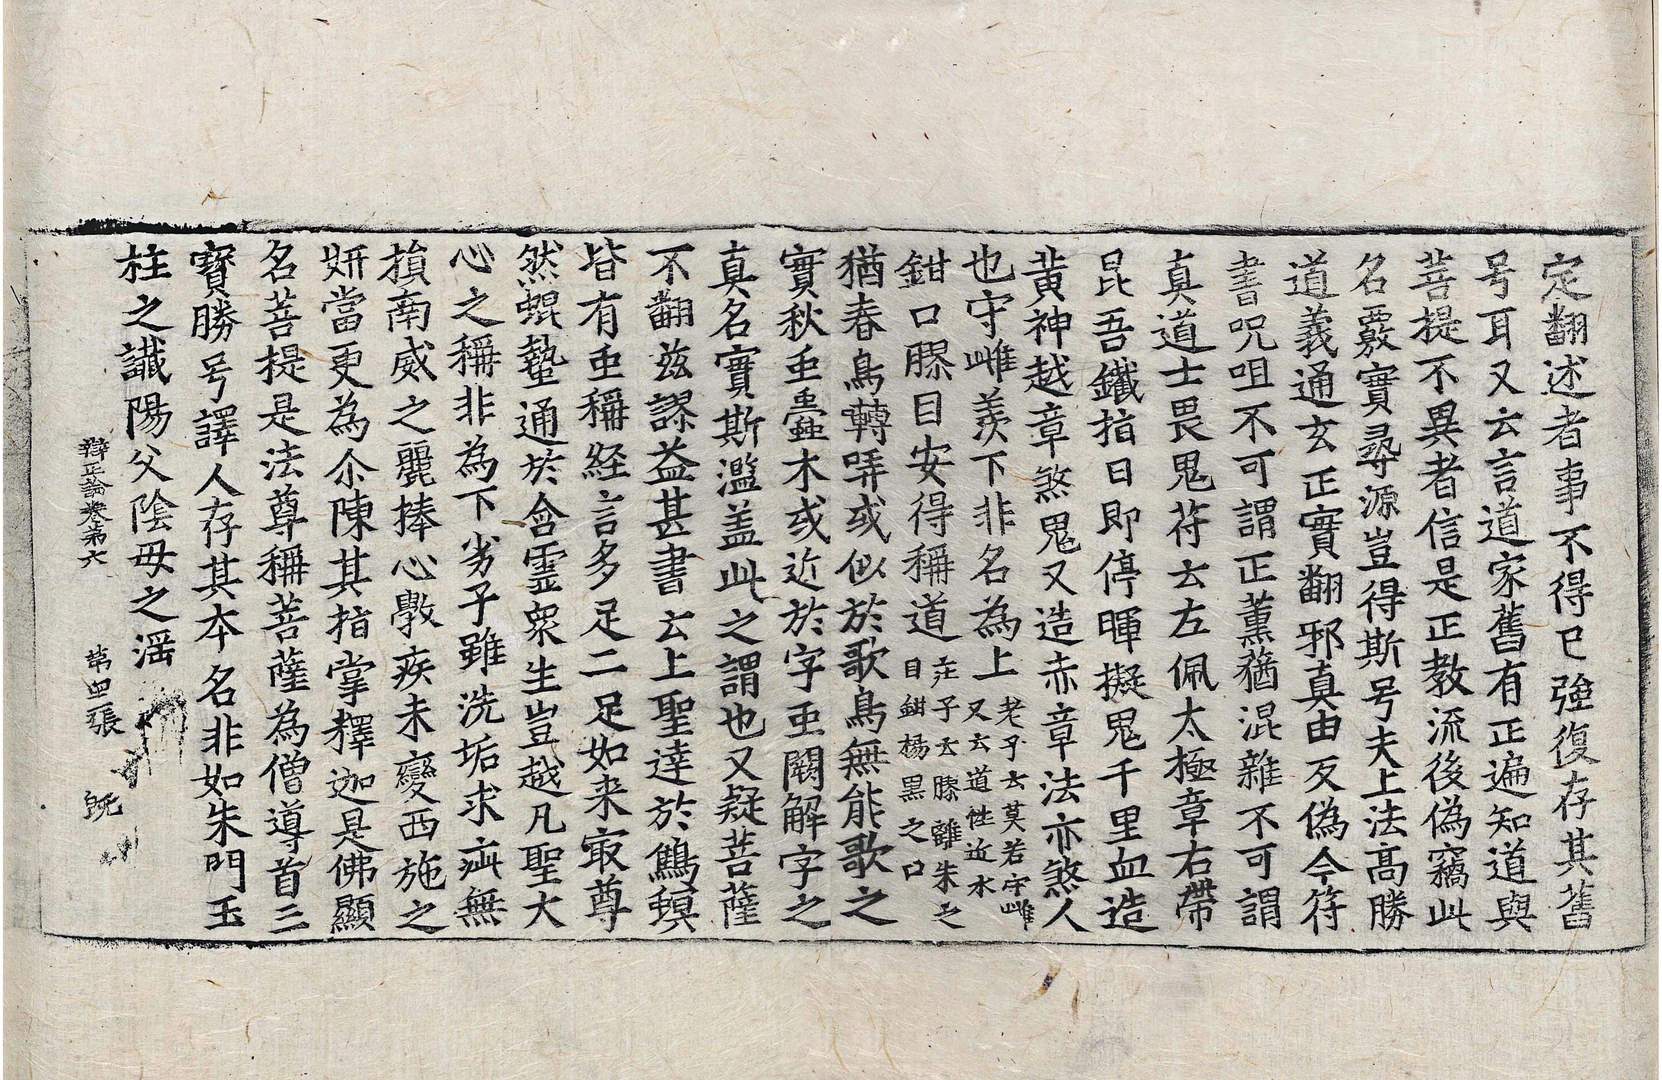 定翻述者事不得已強復存其舊
号耳又云言道家舊有正遍知道與
菩提不異者信是正教流後偽竊此
名覈實尋源豈得斯号夫上法高勝
道義通玄正實翻邪真由反偽今符
書呪咀不可謂正薫猶混雜不可謂
真道士畏鬼符云左佩太極章右帶
昆吾鐵指日即停暉擬鬼千里血造
黄神越章煞鬼又造赤章法亦煞人
也守雌羨下非名為上
老子云莫若守雌
又云道性近水
鉗口膠目安得稱道
庄子云膠離朱之
目鉗楊黒之口
猶春鳥轉哢或似於歌鳥無能歌之
實秋虫蠧木或近於字虫闕解字之
真名實斯濫盖此之謂也又疑菩薩
不翻兹謬益甚書云上聖達於鷦螟
皆有虫稱経言多足二足如来㝡尊
然蜫蟄通於含靈衆生豈越凡聖大
心之稱非為下劣子雖洗垢求疵無
損南威之麗捧心斆疾未變西施之
妍當更為尒陳其指掌釋迦是佛顯
名菩提是法尊稱菩薩為僧導首三
寳勝号譯人存其本名非如朱門玉
柱之讖陽父陰母之謡
辯正論卷第六 第四張 既